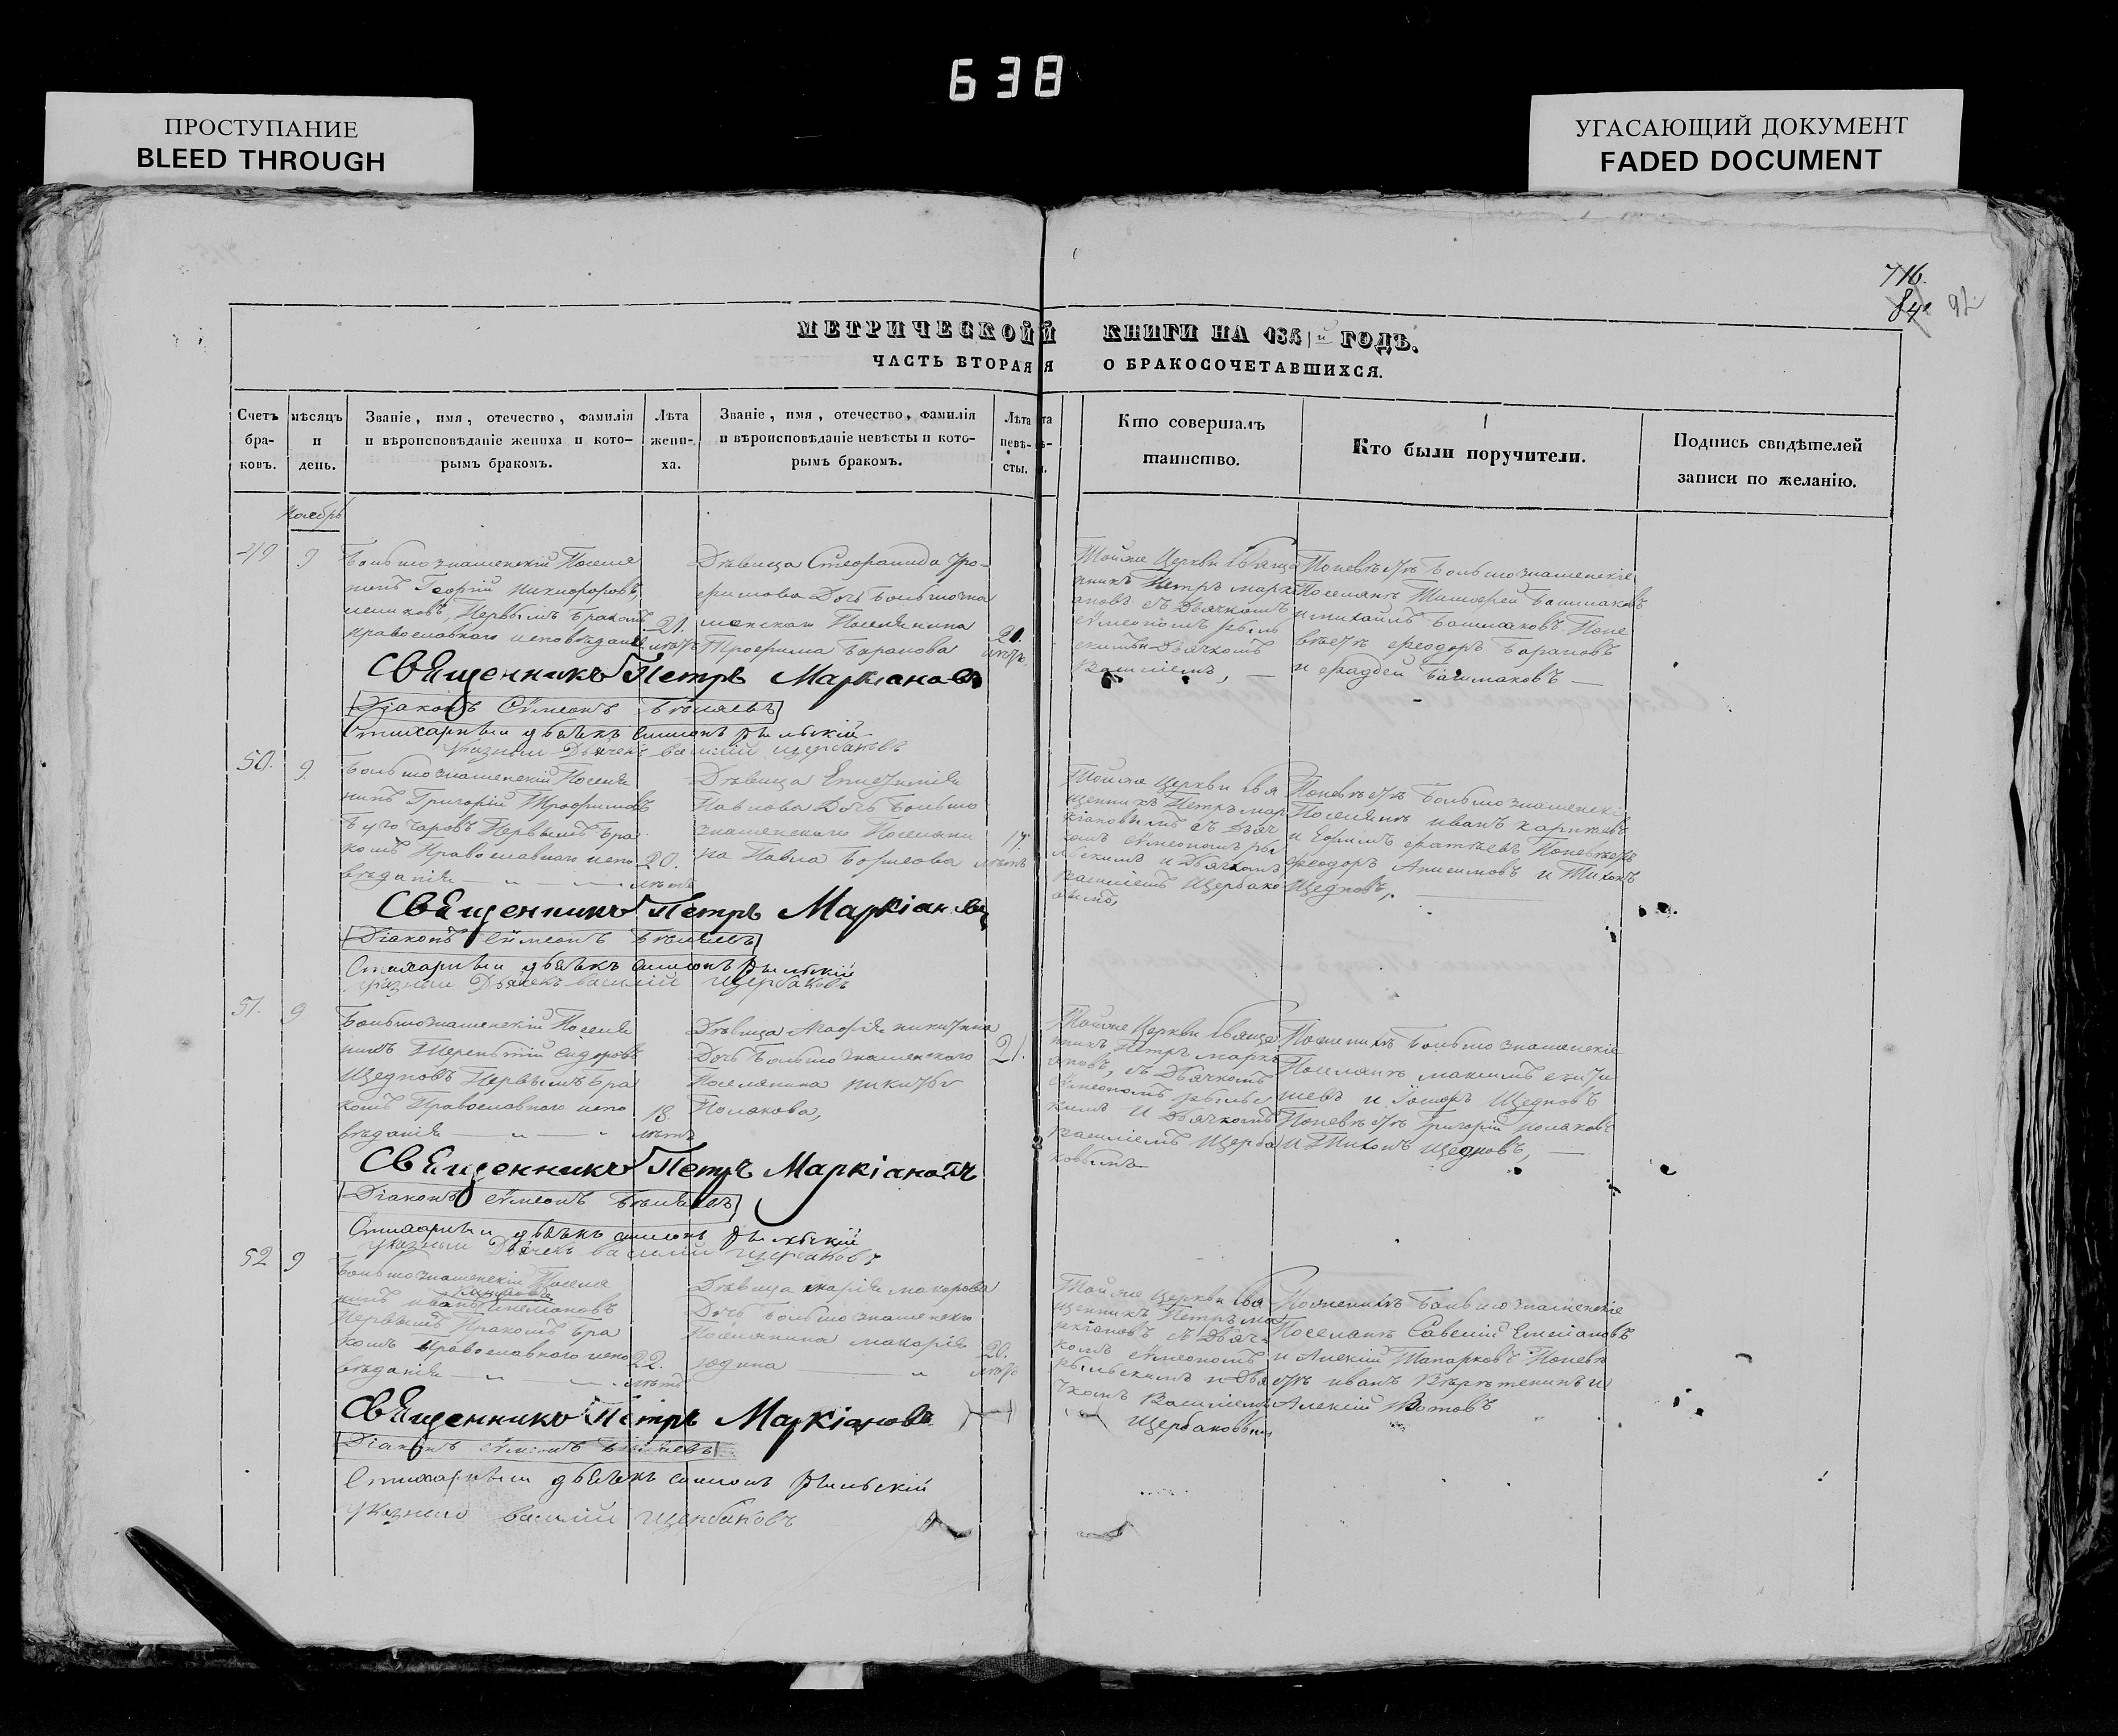 638
ПРОСТУПАНИЕ
BLEED THROUGH
УГАСАЮЩИЙ ДОКУМЕНТ
FADED DOCUMENT
716.
84
МЕТРИЧЕСКОЙ КНИГИ НА 1851й ГОДЪ.
ЧАСТЬ ВТОРАЯ О БРАКОСОЧЕТАВШИХСЯ.
Счетъ бра- ковъ.
мѣсяцъ и день.
Званіе, имя, отечество, фамилія и вѣроисповѣданіе жениха и кото- рымъ бракомъ.
Лѣта жени- ха.
Званіе, имя, отечество, фамилія и вѣроисповѣданіе невѣсты и кото- рымъ бракомъ.
Лѣта невѣ- сты.
Кто совершалъ таинство.
Кто были поручители.
Подпись свидѣтелей записи по желанію.
Ноябрь
49
9
Большознаменскій Поселя
нинъ Георгій Никифоровъ
Первымъ Бракомъ
православнаго исповѣданія
21.
лѣтъ
Дѣвица Стефанида Тро-
фимова Дочь Большозна
менскаго Поселянина
Трофима Баранова
20.
лѣтъ
Тойже Церкви Свяще
нникъ Петръ Марк
ановъ съ Дьячкомъ
Сѵмеономъ Рыль
скимъ и Дьячкомъ
Василіемъ, —
Поневѣстѣ Большознаменскіе
Поселяне Тимофей Башмаковъ
и Михаилъ Башмаковъ Поне
вѣстѣ Феодоръ Барановъ
и Фаддей Башмаковъ —
Священникъ Петръ Маркіановъ
Діаконъ Сѵмеонъ Бѣляевъ
Стихарный дьячекъ Симеонъ Рыльскій
Указный Дьячекъ Василій Щербаковъ
50.
9.
Большознаменскій Поселя
нинъ Григорій Трофимовъ
Первымъ Бра
комъ Православнаго испо
вѣданія
20.
лѣтъ
Дѣвица
Павлова Дочь Большо
знаменскаго Поселяни
на Павла
лѣтъ
Тойже Церкви Свя
щенникъ Петръ Мар
кіановымъ съ Дьяч
комъ Сѵмеономъ Ры
льскимъ и Дьячкомъ
Василіемъ Щербако
вымъ,
Поневѣстѣ Большознаменскі
Поселяне Иванъ
и Ефимъ Поневѣстѣ
Феодоръ Анисимовъ и Тихонъ
Щедновъ,
Священникъ Петръ Маркіановъ
Діаконъ Сѵмеонъ Бѣляевъ
Стихарный дьячекъ Симеонъ Рыльскій
Указный Дьячекъ Василій Щербаковъ
51.
9
Большознаменскій Поселя
нинъ Терентій Сидоровъ
Щедновъ Первымъ Бра
комъ Православнаго испо
вѣданія
18.
лѣтъ
Дѣвица Агафія Никитина
Дочь Большознаменскаго
Поселянина Никиты
Полакова,
21.
Тойже Церкви Свяще
нникъ Петръ Марк
ановъ, съ Дьячкомъ
Сѵмеономъ Рыльс
кимъ и Дьячкомъ
Василіемъ Щерба
ковымъ
Поженихѣ Большознаменскіе
Поселяне Максимъ
и Щедновъ
Поневѣстѣ Григорій Полаковъ
и Тихонъ Щедновъ, —
Священникъ Петръ Маркіановъ
Діаконъ Сѵмеонъ Бѣляевъ
Стихарный дьячекъ Симеонъ Рыльскій
Указный Дьячекъ Василій Щербаковъ
52
9
Большознаменскій Поселя
нинъ Иванъ
Первымъ Бра
комъ Православнаго испо
вѣданія
22.
лѣтъ
Дѣвица Марія Макарова
Дочь Большознаменско
Поселянина Макарія
Юдина
20.
лѣтъ
Тойже Церкви Свя
щенникъ Петръ Ма
ркіановъ съ Дьяч
комъ Сѵмеономъ
Рыльскимъ и Дья
чкомъ Василіемъ
Щербаковымъ
Поженихѣ Большознаменскіе
Поселяне Савелій Емельяновъ
и Алексій Поневѣ
стѣ Иванъ Верѣтенинъ и
Алексій
Священникъ Петръ Маркіановъ
Діаконъ Сѵмеонъ Бѣляевъ
Стихарный дьячекъ Симеонъ Рыльскій
Указный Василій Щербаковъ